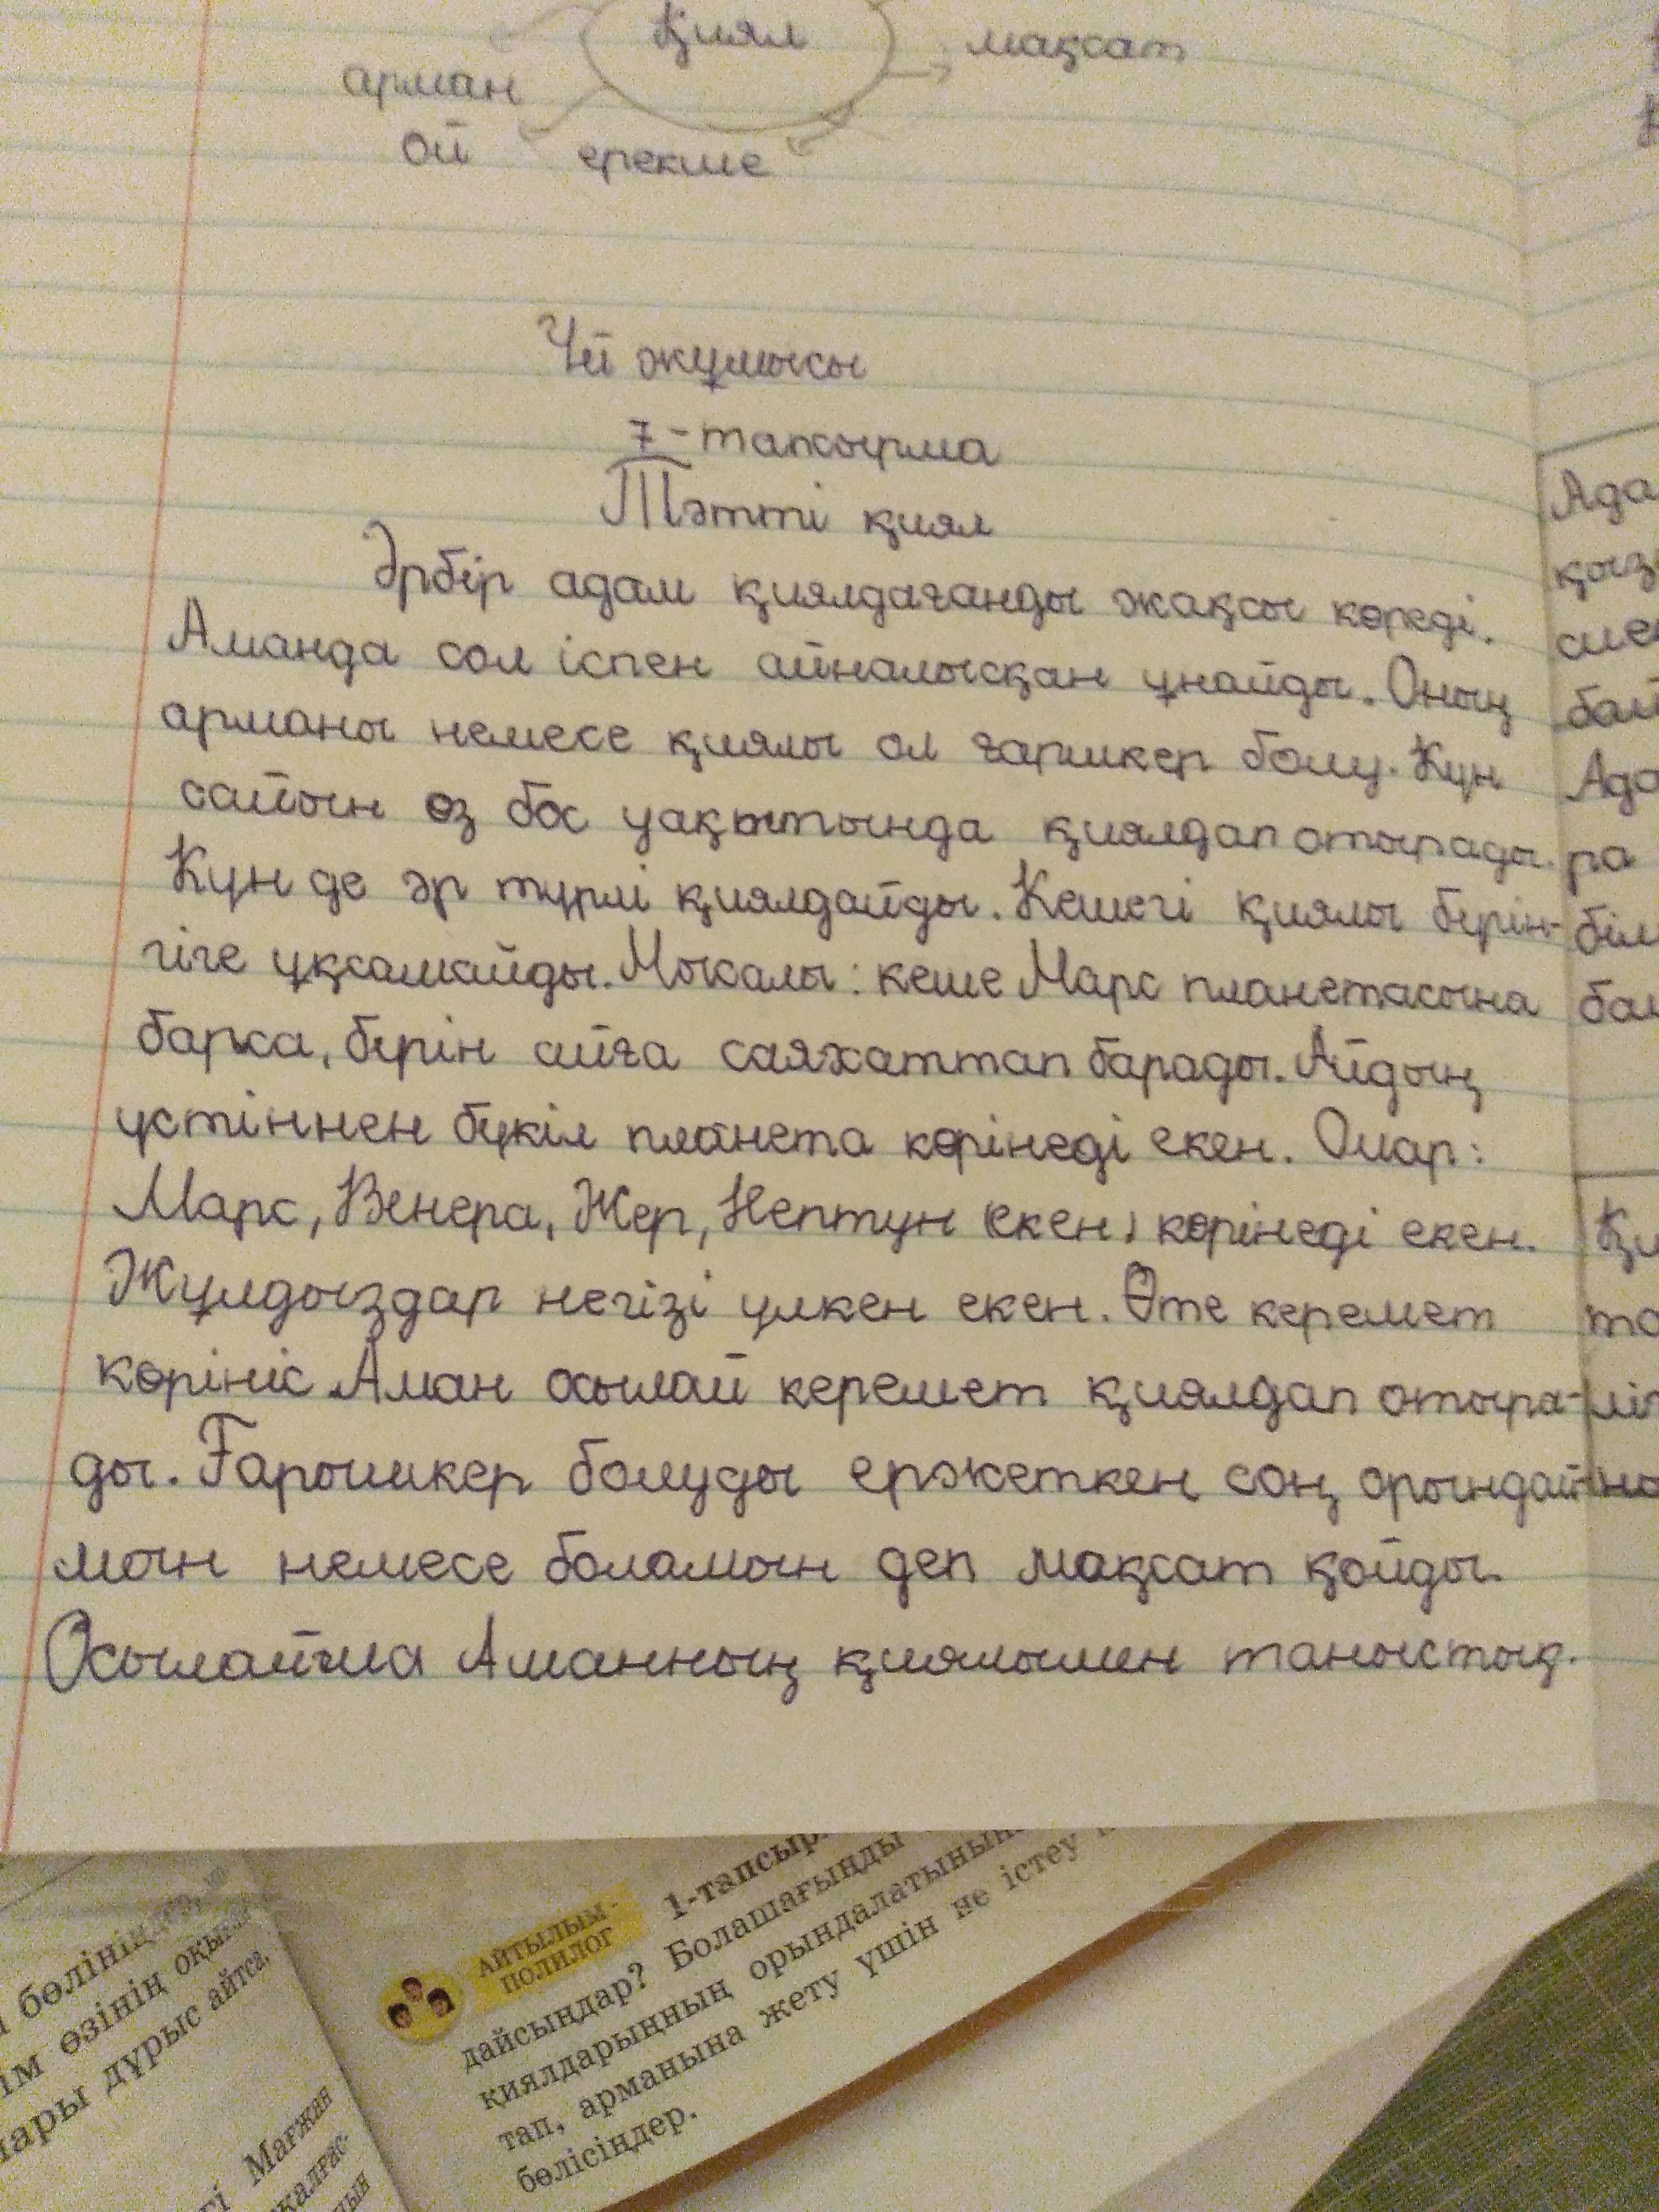 қиял
мақсат
арман
ой ерекше
Үй жұмысы
7-тапсырма
Тәтті қиял
Әрбір адам қиялдағанды жақсы көреді.
Аманда сол іспен айналысқан ұнайды. Оның
арманы немесе қиялы ол ғарышкер болу. Күн
сайын өз бос уақытында қиялдап отырады.
Күн де әр түрлі қиялдайды. Кешегі қиялы бүгін-
гіге ұқсамайды. Мысалы: кеше Марс планетасына
барса, бүгін айға саяхаттап барады. Айдың
үстіннен бүкіл планета көрінеді екен. Олар:
Марс, Венера, Жер, Нептун (екен) көрінеді екен.
Жұлдыздар негізі үлкен екен. Өте керемет
көрініс. Аман осылай керемет қиялдап отыра-
ды. Ғарышкер болуды ержеткен соң орындай-
мын немесе боламын деп мақсат қойды.
Осылайша Аманның қиялымен таныстық.
Ада
қыз
ра
біл
Қи
АЙТЫЛЫМ-
ПОЛИЛОГ
1-тапсыр
дайсыңдар? Болашағыңды
қиялдарыңның орындалатынына
тап, арманына жету үшін не істеу
бөлісіңдер.
бөлініңдер,
ім өзінің оқыған
лары дұрыс айтса,
гі Мағжан
жалғас-